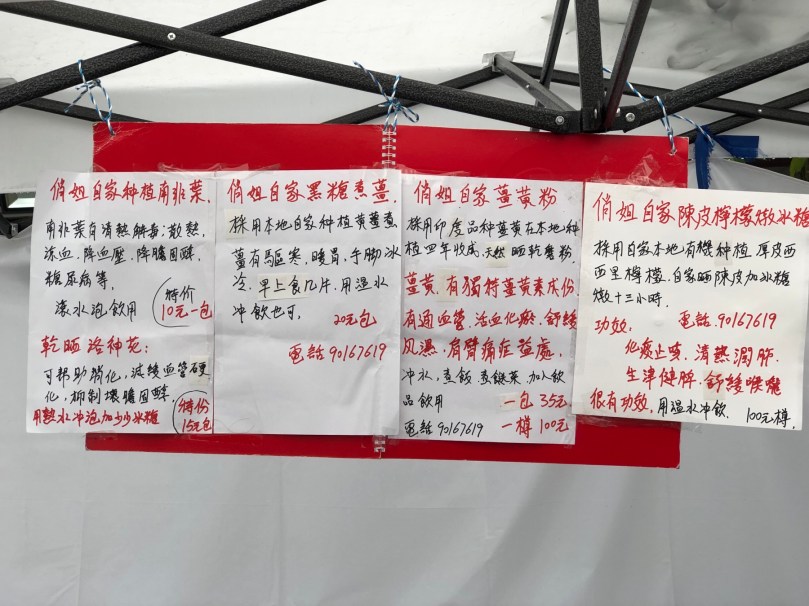 俏姐自家种植南非葉.
南非葉有清熱解毒:散熱,
冻血.降血壓.降膽固醇.
糖尿病等,
滾水泡飲用
特价
10元一包
乾晒洛神花:
可帮助消化,減緩血管硬
化,抑制壞膽固醇.
用熱水冲泡加少少冰糖
特价
15元包
俏姐自家黑糖煮薑.
採用本地自家种植黄薑煮
薑有驅寒.暖胃.手脚冰
冷.早上食几片.用溫水
冲飲也可.
20元包
電話90167619
俏姐自家薑黃粉
採用印度品种薑黃在本地种
植四年收成.天然晒乾磨粉.
薑黃.有獨特薑黃素成份.
有通血管.活血化瘀.舒緩
風濕.肩臂痛症益處,
冲水,煮飯.煮餸菜.加入飲
品飲用
一包35元
電話90167619
一樽100元
俏姐自家陳皮檸檬燉冰糖
採用自家本地有機种植.厚皮西
西里檸檬.自家晒陳皮加冰糖
燉十三小時.
功效:
電話.90167619
化痰止咳.清熱潤肺
生津健脾.舒緩喉嚨
很有功效.用溫水冲飲.
100元樽.